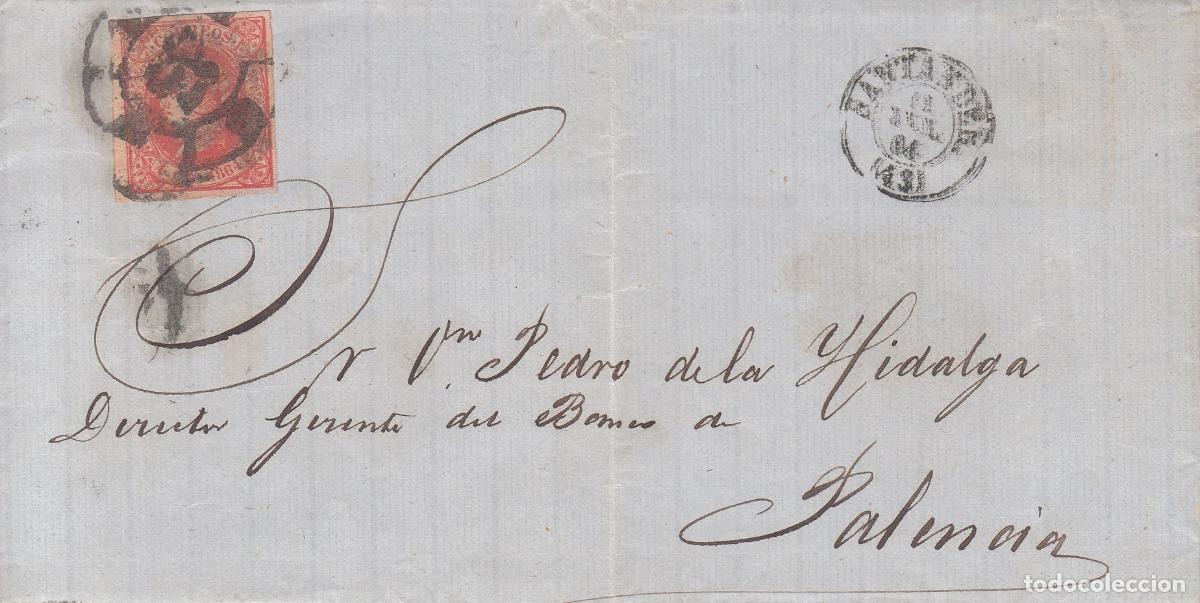 CORREOS
1864
SANTANDER
11
JUL.
64
(43)
Sr Dn Pedro de la Hidalga
Director Gerente del Banco de
Palencia
todocoleccion